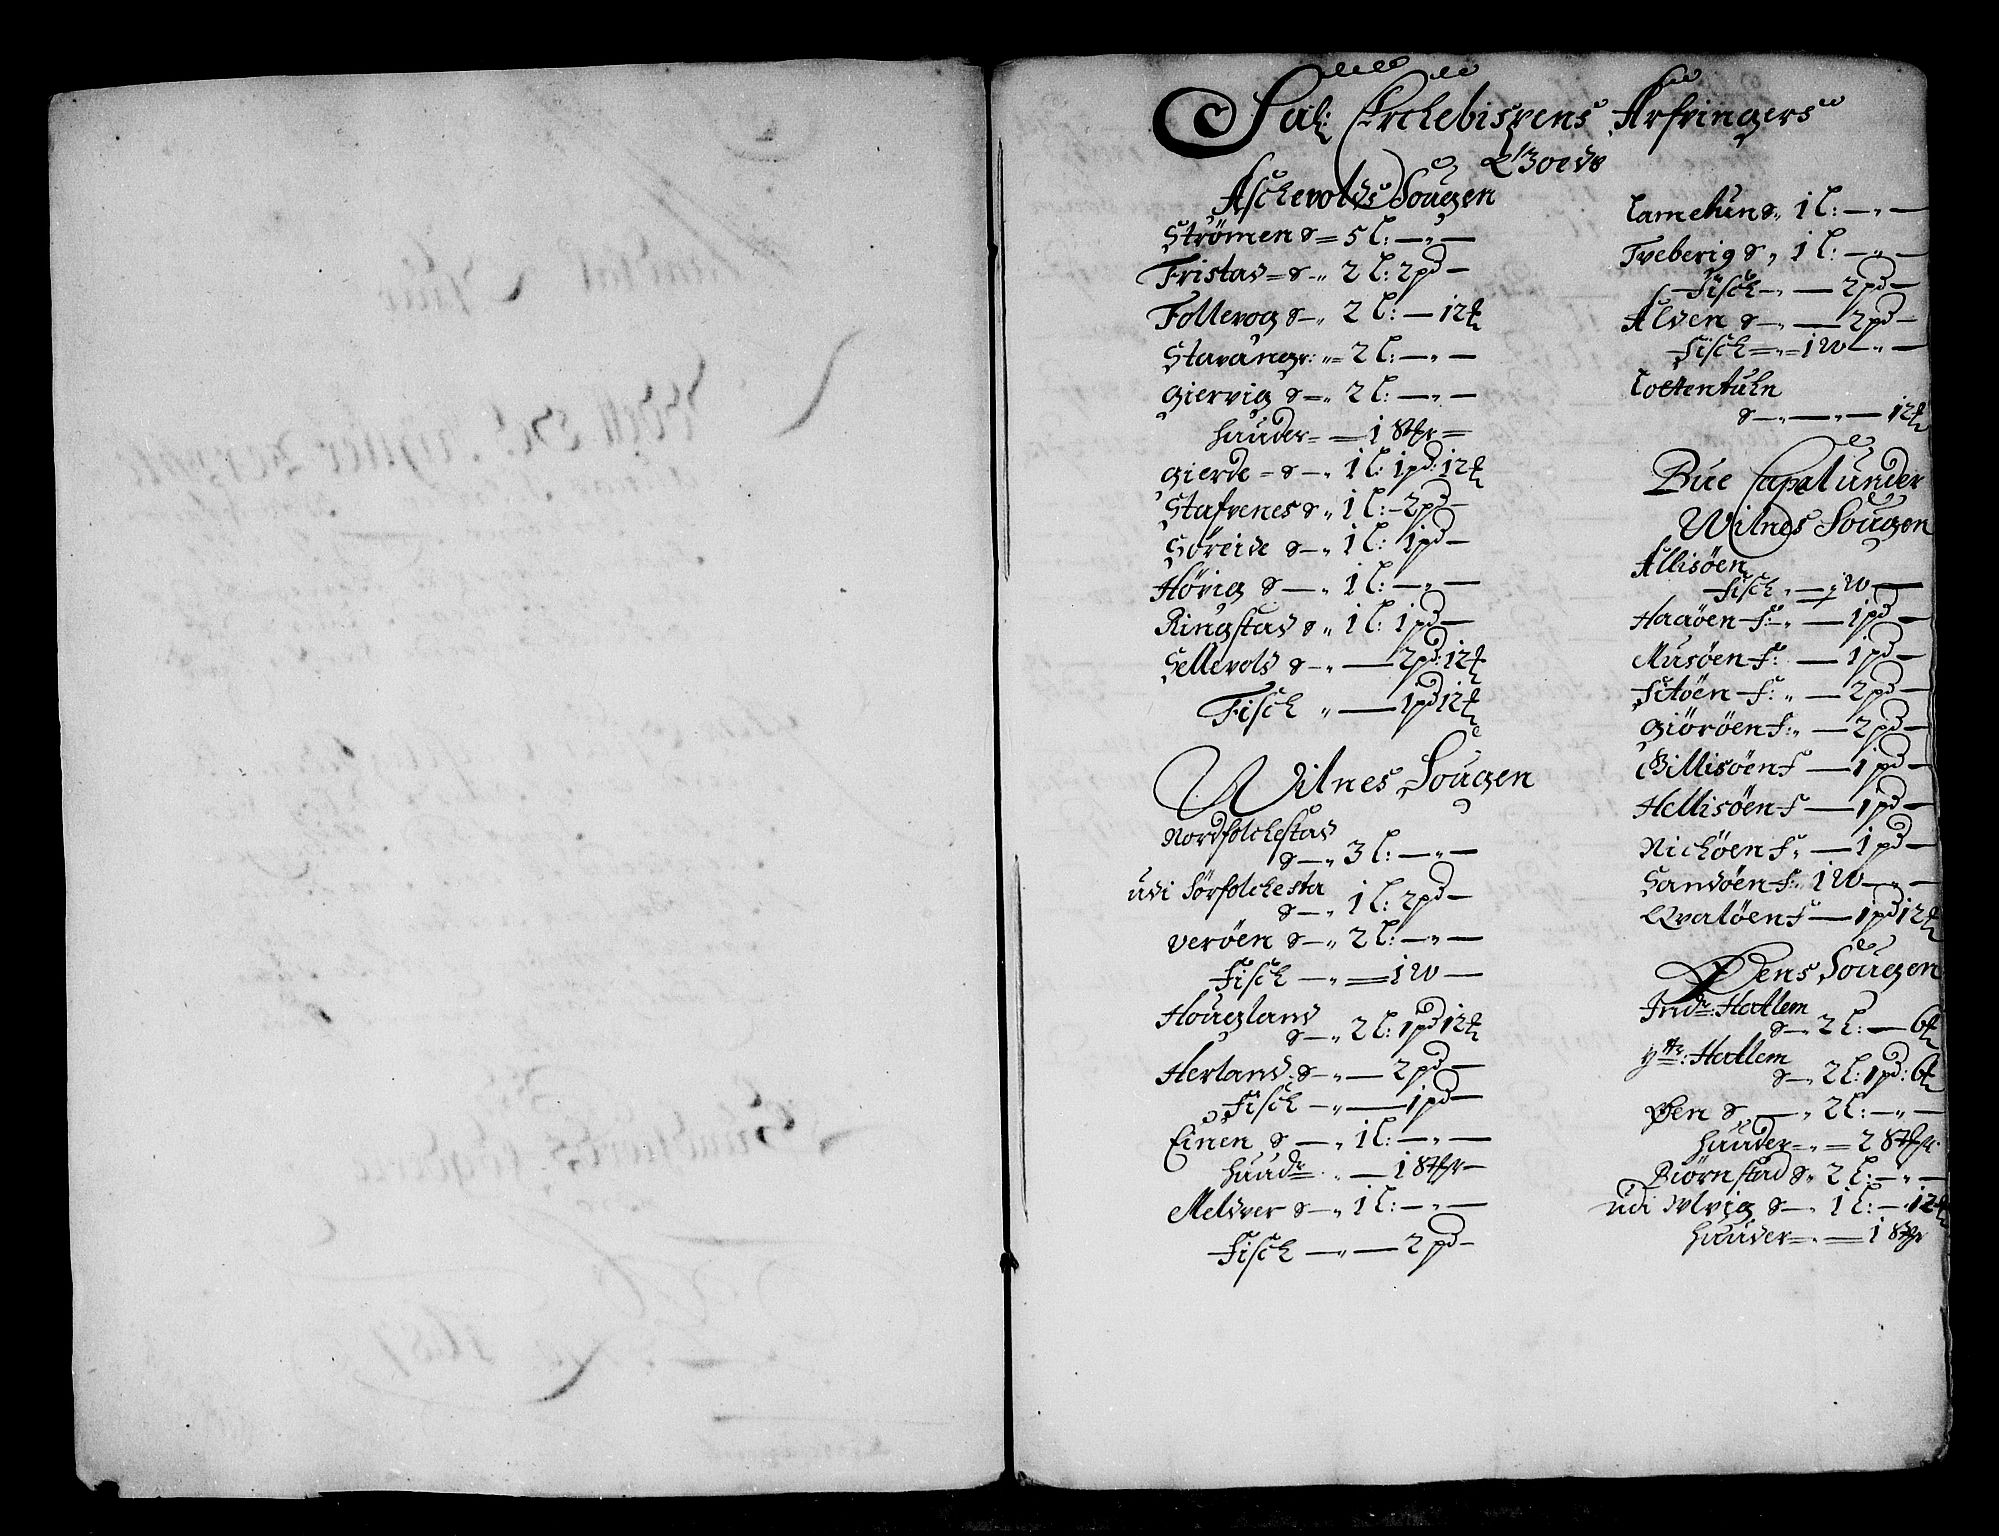 Sal: Erchebispens Arfvingers
Goeds
Aschevolds Sougen
Strömen s = 5 l: — " —
Fristad = s — " 2 l: 2 pd —
Follevog s — " 2 l: — 12 ℔
Stavangr: " = 2 l: — " —
Giervig s = " 2 l: — " —
huuder = = 1 Styr =
Gierde = s — " 1 l: 1 pd: 12 ℔
Stafvenes s " 1 l: — 2 pd —
Söreide s — " 1 l: 1 pd —
Hövig s — " 1 l: — " —
Ringstad s " 1 l: 1 pd —
Sellevold s — " — 2 pd: 12 ℔
Fisch " — 1 pd 12 ℔
Wilnes Sougen
Nordfolchestad
s — " 3 l: — " —
udi Sörfolchesta
s — " 1 l: 2 pd —
Veröen s — " 2 l: — " —
Fisch — " = 1 W —
Hougland
s — " 2 l: 1 pd 12 ℔
Herland s — " — 2 pd —
Fisch — " — 1 pd —
Einen s — " 1 l: — " —
huudr — 1 Styr —
Meldver s — " 1 l: — " —
Fisch — " — 2 pd —
Tamelun s " 1 l: — " —
Tveberig s " 1 l: — " —
Fisch — " — 2 pd —
Alden s — " — 2 pd —
Fisch = " = 1 W — " —
s — " — " — 12 ℔
Bue Capel under
Wilnes Sougen
Allisöen
Fisch " — " 1 W —
Haaöen F: " — 1 pd —
Musöen F: — 1 pd —
Sitöen F: " — 2 pd —
Giöröen F: " — 2 pd —
Billisöen F — 1 pd —
Hellisöen F — 1 pd —
Nichöen F " — 1 pd —
Sandöen F: " 1 W — " —
Qvalöen F — 1 pd 12 ℔
Øens Sougen
Indr: Hatlem
s — " 2 l: — 6 ℔
yttr: Hatlem
s — " 2 l: 1 pd: 6 ℔
Øen s — " 2 l: — " —
huuder = " = 2 Styr
Biörnstad s " 2 l: — " —
udi Ulvig s — " 1 l: — 12 ℔
huuder = " = 1 Styr